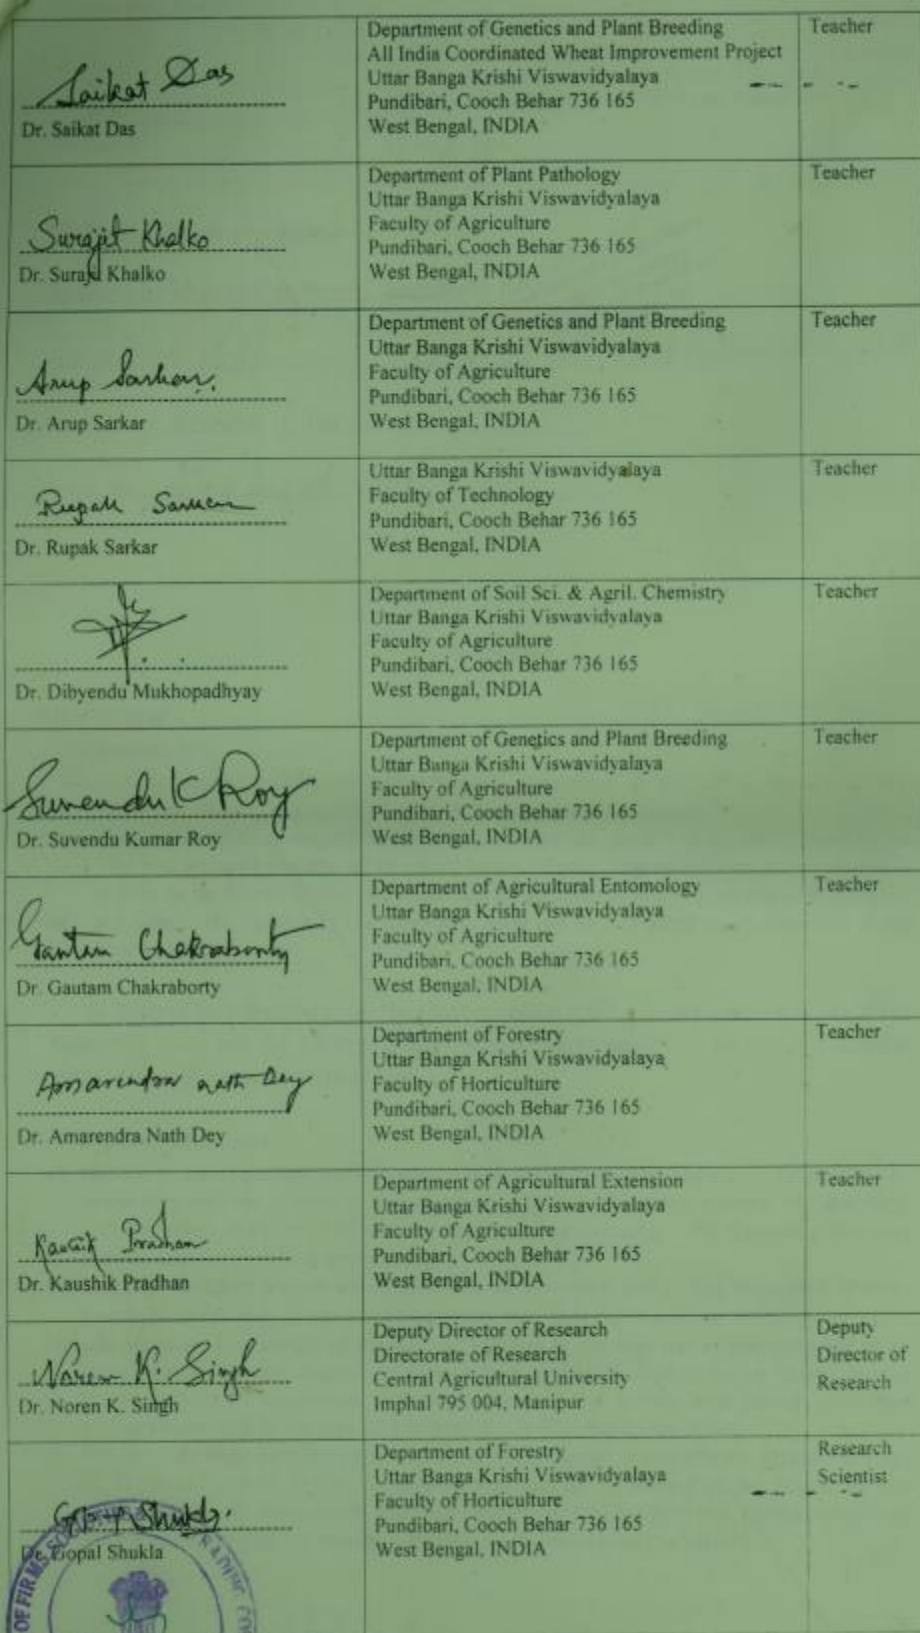 Saikat Das
Dr. Saikat Das
Department of Genetics and Plant Breeding
All India Coordinated Wheat Improvement Project
Uttar Banga Krishi Viswavidyalaya
Pundibari, Cooch Behar 736 165
West Bengal, INDIA
Teacher
Surajit Khalko
Dr. Surajit Khalko
Department of Plant Pathology
Uttar Banga Krishi Viswavidyalaya
Faculty of Agriculture
Pundibari, Cooch Behar 736 165
West Bengal, INDIA
Teacher
Arup Sarkar.
Dr. Arup Sarkar
Department of Genetics and Plant Breeding
Uttar Banga Krishi Viswavidyalaya
Faculty of Agriculture
Pundibari, Cooch Behar 736 165
West Bengal, INDIA
Teacher
Rupak Sarkar
Dr. Rupak Sarkar
Uttar Banga Krishi Viswavidyalaya
Faculty of Technology
Pundibari, Cooch Behar 736 165
West Bengal, INDIA
Teacher
Dr. Dibyendu Mukhopadhyay
Department of Soil Sci. & Agril. Chemistry
Uttar Banga Krishi Viswavidyalaya
Faculty of Agriculture
Pundibari, Cooch Behar 736 165
West Bengal, INDIA
Teacher
Suvendu K Roy
Dr. Suvendu Kumar Roy
Department of Genetics and Plant Breeding
Uttar Banga Krishi Viswavidyalaya
Faculty of Agriculture
Pundibari, Cooch Behar 736 165
West Bengal, INDIA
Teacher
Gautam Chakraborty
Dr. Gautam Chakraborty
Department of Agricultural Entomology
Uttar Banga Krishi Viswavidyalaya
Faculty of Agriculture
Pundibari, Cooch Behar 736 165
West Bengal, INDIA
Teacher
Amarendra nath Dey
Dr. Amarendra Nath Dey
Department of Forestry
Uttar Banga Krishi Viswavidyalaya
Faculty of Horticulture
Pundibari, Cooch Behar 736 165
West Bengal, INDIA
Teacher
Kaushik Pradhan
Dr. Kaushik Pradhan
Department of Agricultural Extension
Uttar Banga Krishi Viswavidyalaya
Faculty of Agriculture
Pundibari, Cooch Behar 736 165
West Bengal, INDIA
Teacher
Noren K. Singh
Dr. Noren K. Singh
Deputy Director of Research
Directorate of Research
Central Agricultural University
Imphal 795 004, Manipur
Deputy
Director of
Research
Gopal Shukla.
Dr. Gopal Shukla
Department of Forestry
Uttar Banga Krishi Viswavidyalaya
Faculty of Horticulture
Pundibari, Cooch Behar 736 165
West Bengal, INDIA
Research
Scientist
OF FIRMS